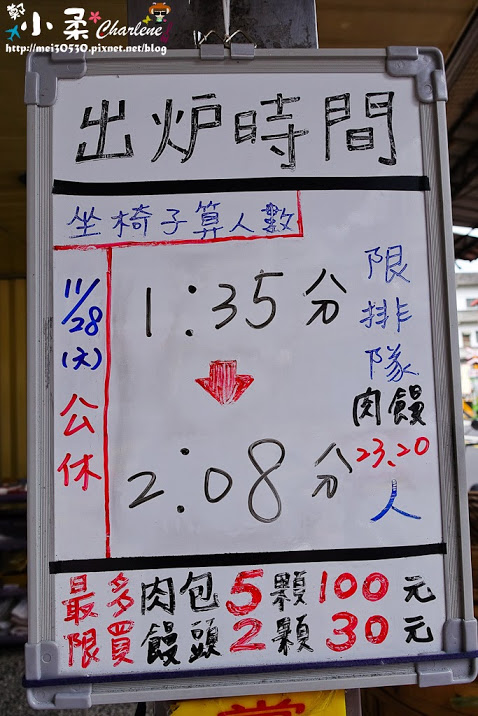 小柔 Charlene
http://mei30530.pixnet.net/blog
出炉時間
坐椅子算人數
11/28
(天)
公休
1:35分
2:08分
限排隊
肉饅
23、20
人
最多肉包5顆100元
限買饅頭2顆30元